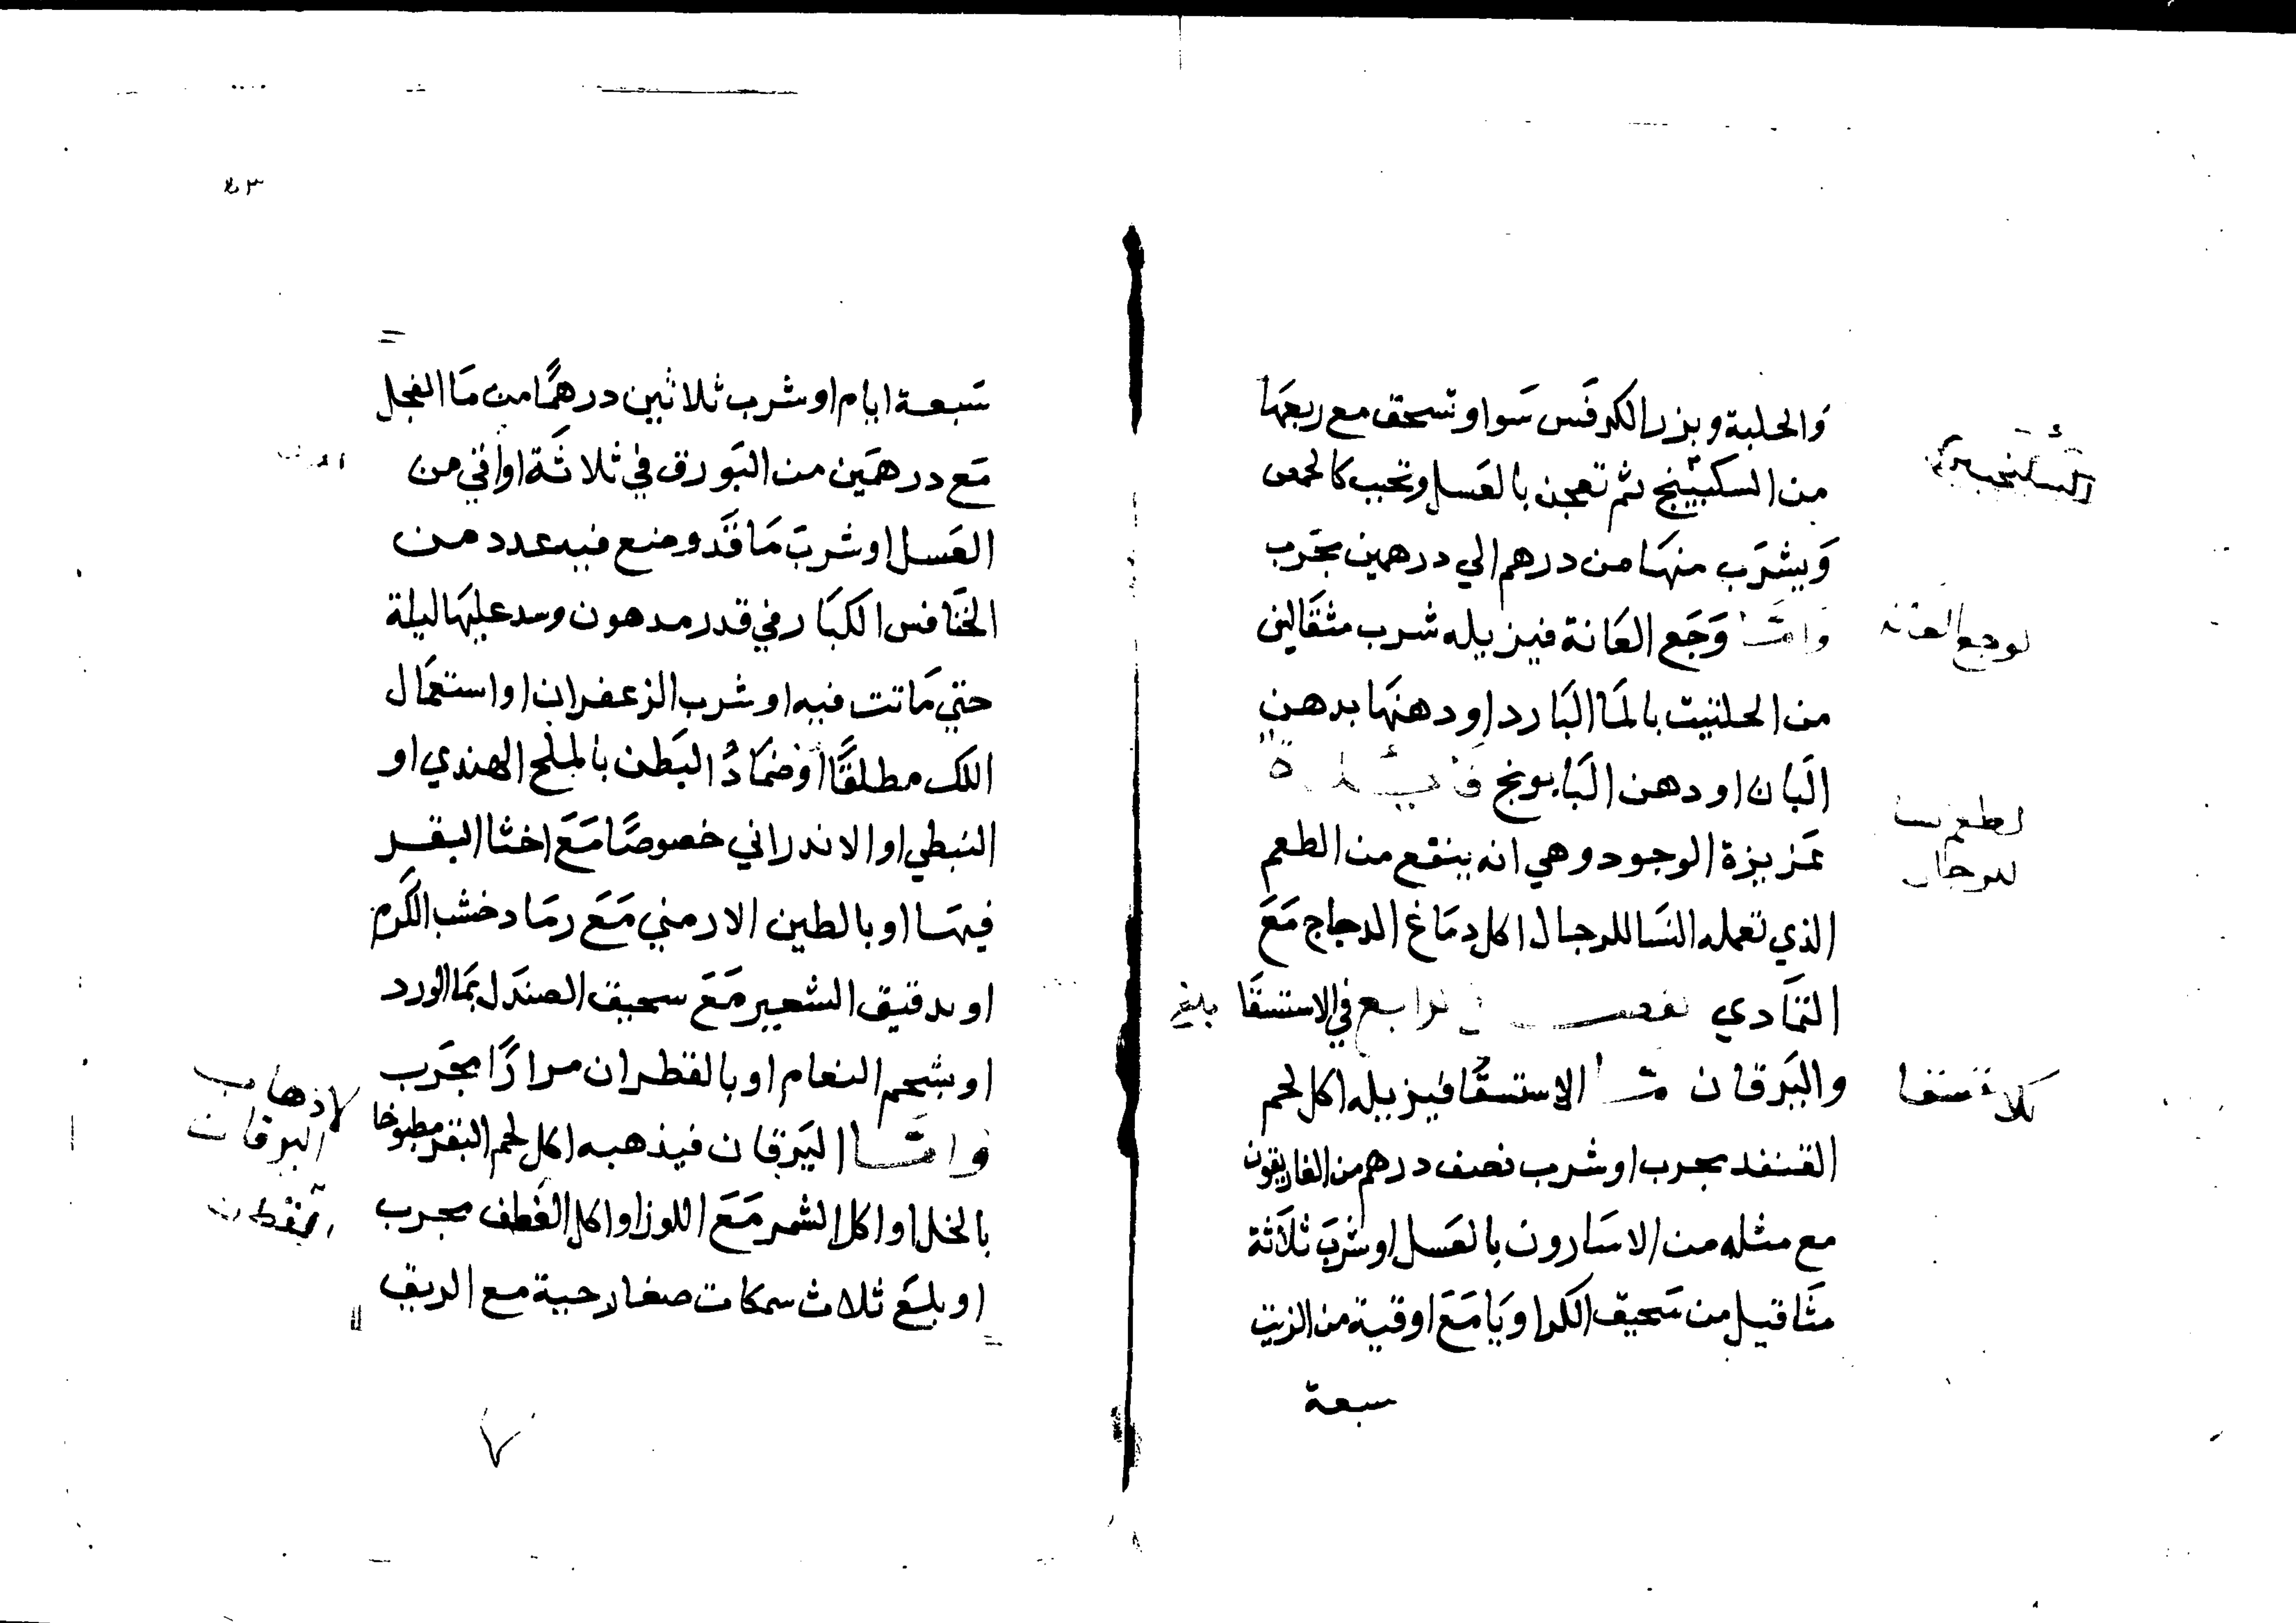 والحلبة وبزر الكرفس سوا وتسحق مع ربعها
من السكبينج ثم تعجن بالعسل وتحبب كالحمص
ويشرب منها من درهم الي درهمين مجرب
واما وجع العانة فيزيله شرب مثقالين
من الحلتيت بالما البارد او دهنها بدهن
البان او دهن البابونج فايدة
عزيزة الوجود وهي انه ينفع من الطعم
الذي تعمله النسا للرجال اكل دماغ الدجاج مع
التمادي الرابع في الاستسقا
واليرقان اما الاستسقا فيزيله اكل لحم
القنفد مجرب او شرب نصف درهم من الغاريقون
مع مثله من الاسارون بالعسل او شرب ثلاثة
مثاقيل من سحيق الكراويا مع اوقية من الزيت
سبعة
لوجع العانة
لطعم نسا
للرجال
سبعة ايام او شرب ثلاثين درهما من ما الفجل
مع درهمين من البورق في ثلاثة اواقي من
العسل او شرب ما قد وضع فيه عدد من
الخنافس الكبار في قدر مدهون وسد عليها ليلة
حتي ماتت فيه او شرب الزعفران او استعمال
اللك مطلقا او ضماد البطن بالملح الهندي او
النبطي او الاندراني خصوصا مع اخثا البقر
فيها او بالطين الارمني مع رماد خشب الكرم
او بدقيق الشعير مع سحيق الصندل بما الورد
او بشحم النعام او بالقطران مرارا مجرب
واما اليرقان فيذهبه اكل لحم البقر مطبوخا
بالخل او اكل الشمر مع اللوز او اكل القطف مجرب
او بلع ثلاث سمكات صغار حية مع الريق
لاذهاب
اليرقان